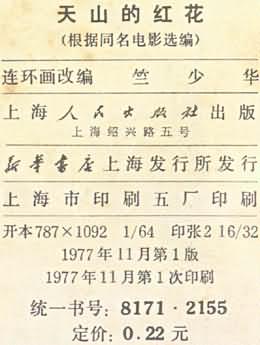 天山的红花
(根据同名电影选编)
连环画改编 竺少华
上海人民出版社出版
上海绍兴路五号
新华书店上海发行所发行
上海市印刷五厂印刷
开本787×1092 1/64 印张2 16/32
1977年11月第1版
1977年11月第1次印刷
统一书号：8171·2155
定价：0.22元